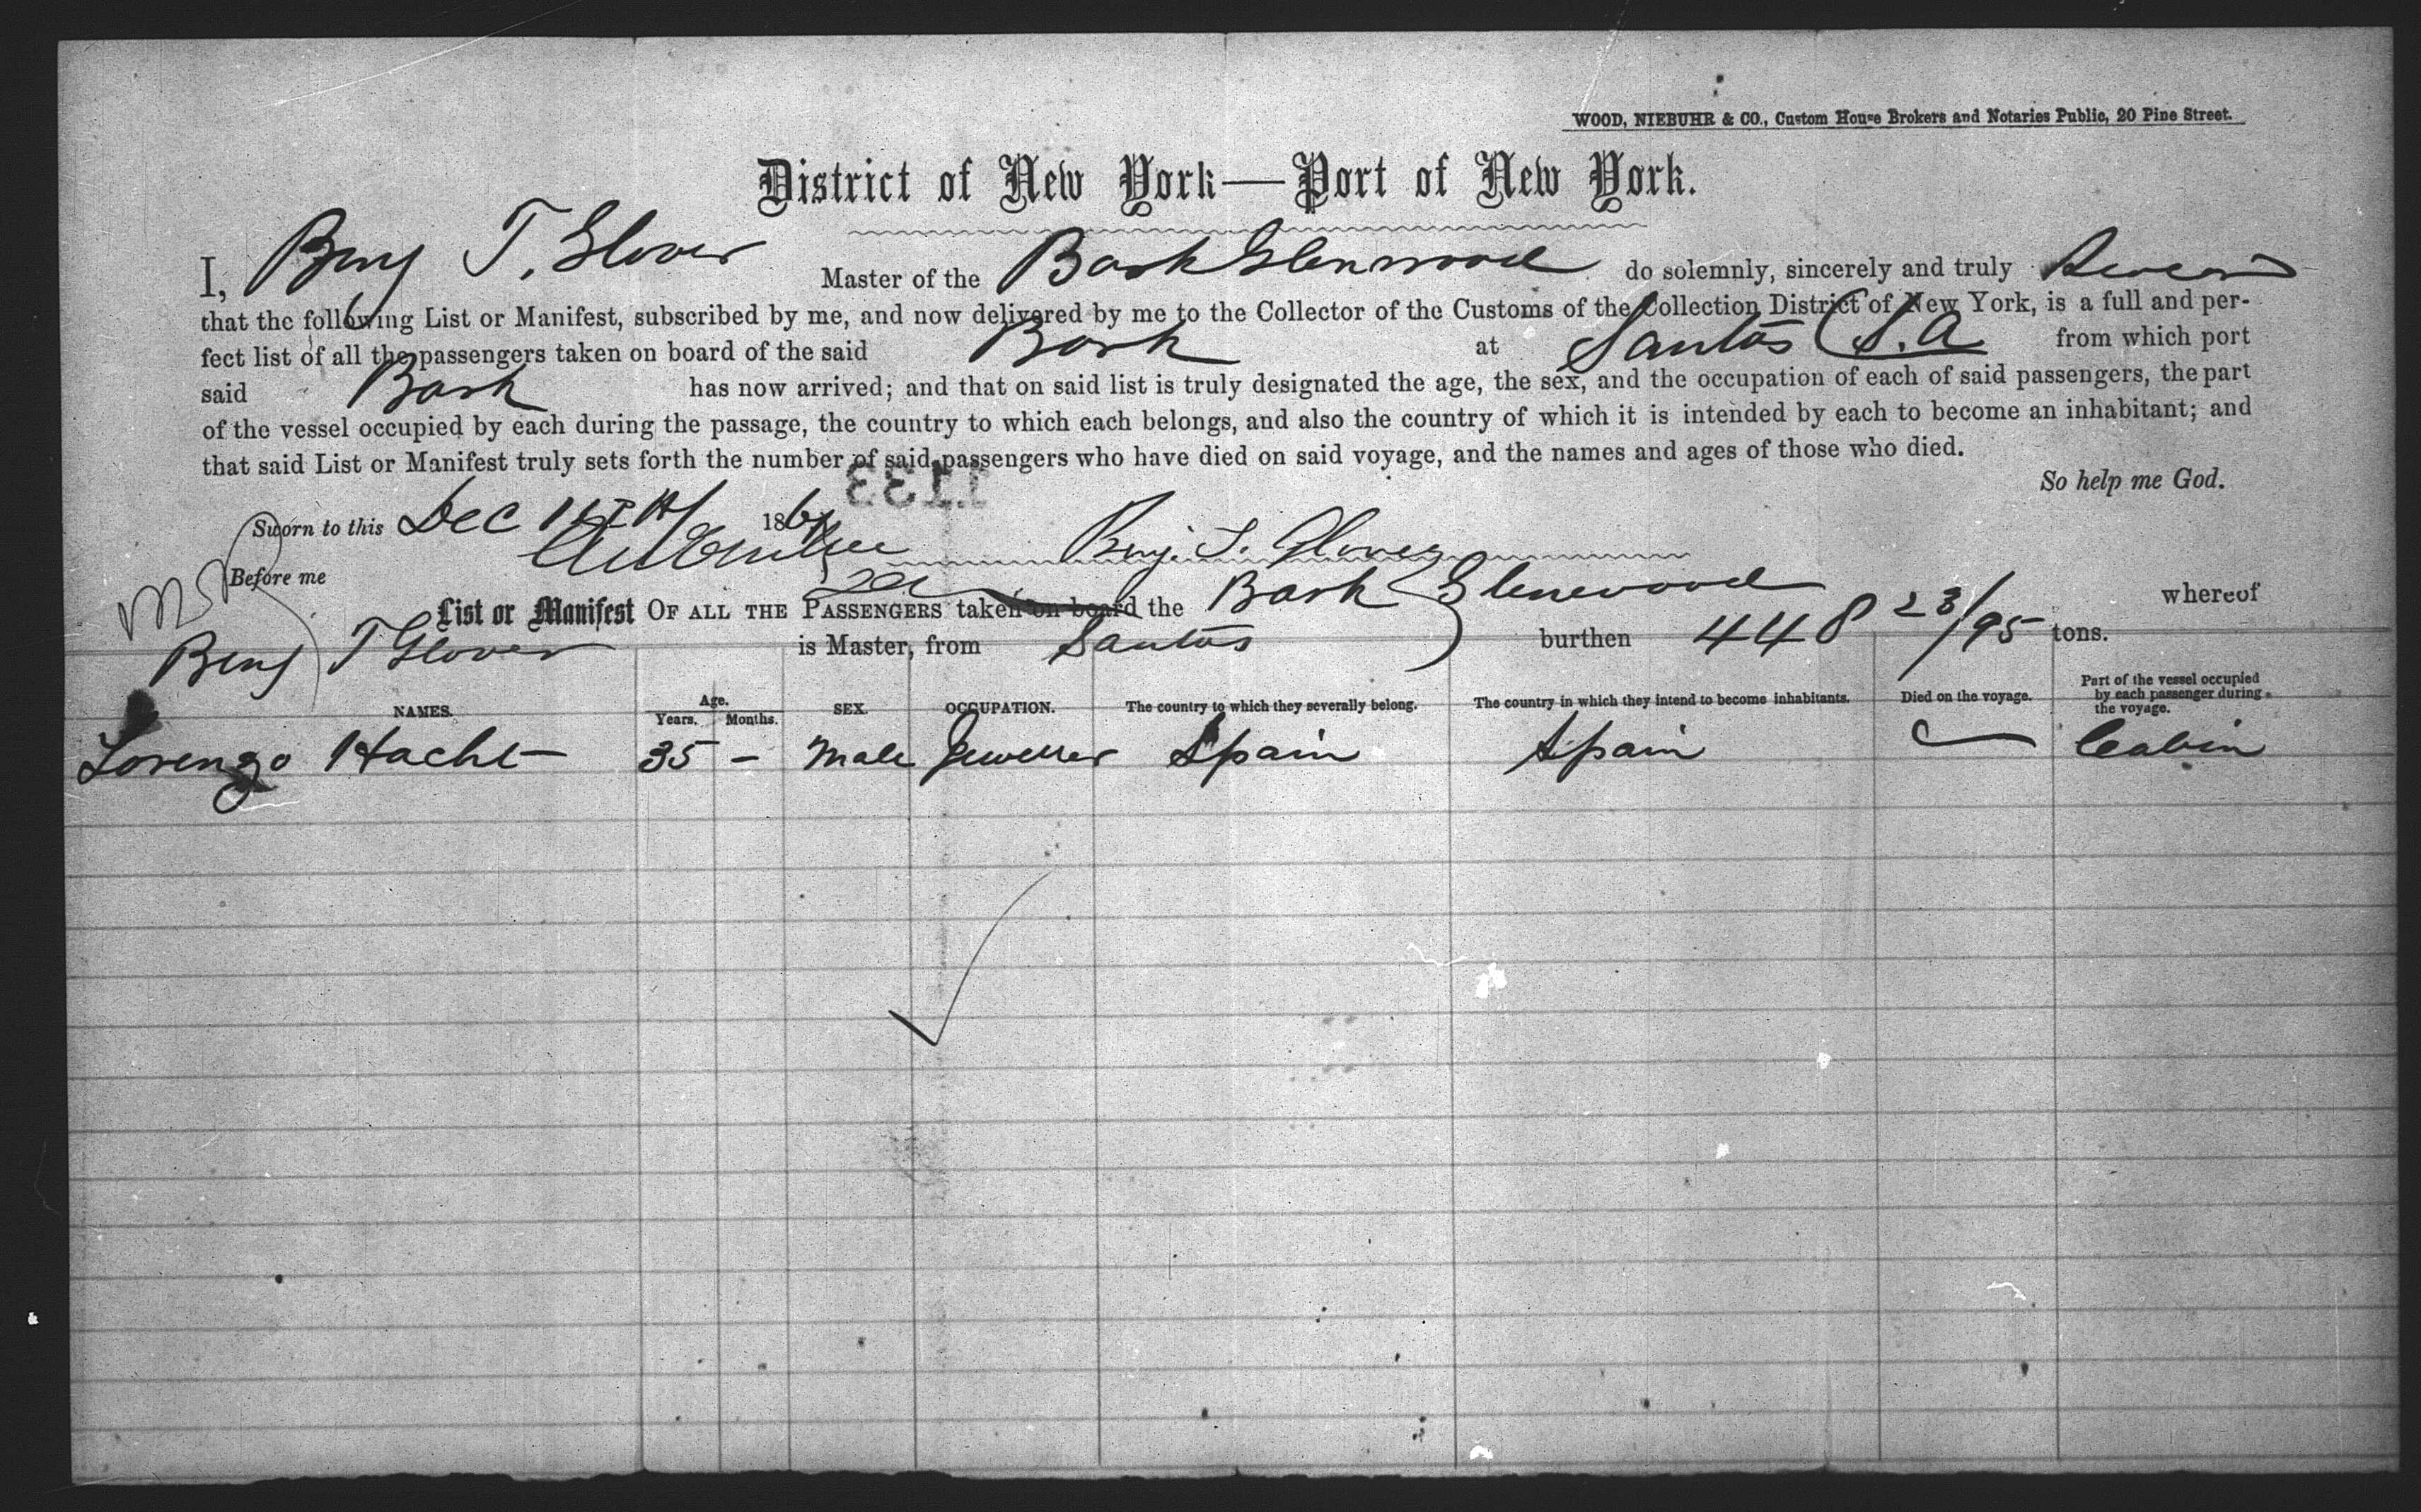 WOOD, NIEBUHR & CO., Custom House Brokers and Notaries Public, 20 Pine Street.
District of New York—Port of New York.
I, Benj T. Glover Master of the Bark Glenwood do solemnly, sincerely and truly Swear
that the following List or Manifest, subscribed by me, and now delivered by me to the Collector of the Customs of the Collection District of New York, is a full and per-
fect list of all the passengers taken on board of the said Bark at Santos S.A from which port
said Bark has now arrived; and that on said list is truly designated the age, the sex, and the occupation of each of said passengers, the part
of the vessel occupied by each during the passage, the country to which each belongs, and also the country of which it is intended by each to become an inhabitant; and
that said List or Manifest truly sets forth the number of said passengers who have died on said voyage, and the names and ages of those who died.
1133
So help me God.
Sworn to this Dec 186
Benj. T. Glover
Before me
List or Manifest OF ALL THE PASSENGERS taken on board the Bark Glenwood whereof
Benj T Glover is Master, from Santos burthen 448 23/95 tons.
NAMES. Age. Years. Months. SEX. OCCUPATION. The country to which they severally belong. The country in which they intend to become inhabitants. Died on the voyage. Part of the vessel occupied by each passenger during the voyage.
Lorenzo Hacht 35 – Male Jeweller Spain Spain — Cabin